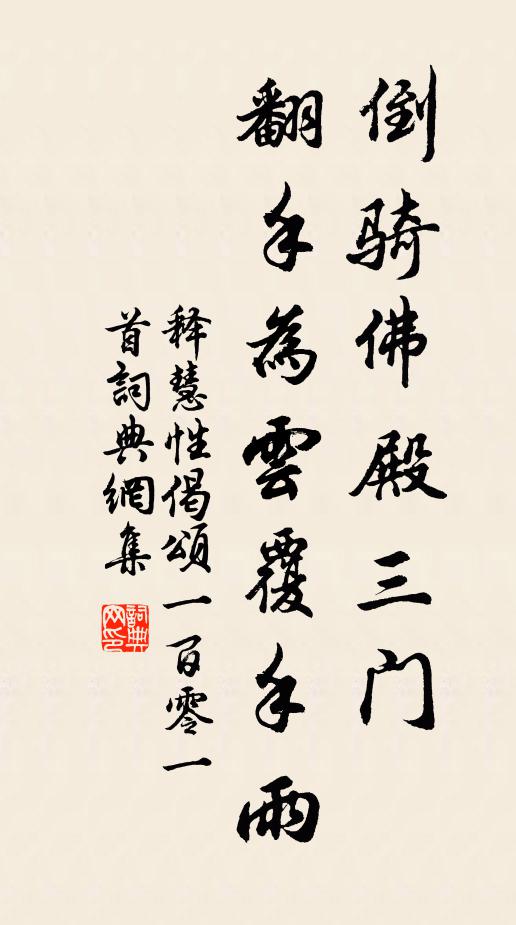 倒骑佛殿三门
翻手為雲覆手雨
释慧性偈頌一百零一
首詞典網集
詞典网印